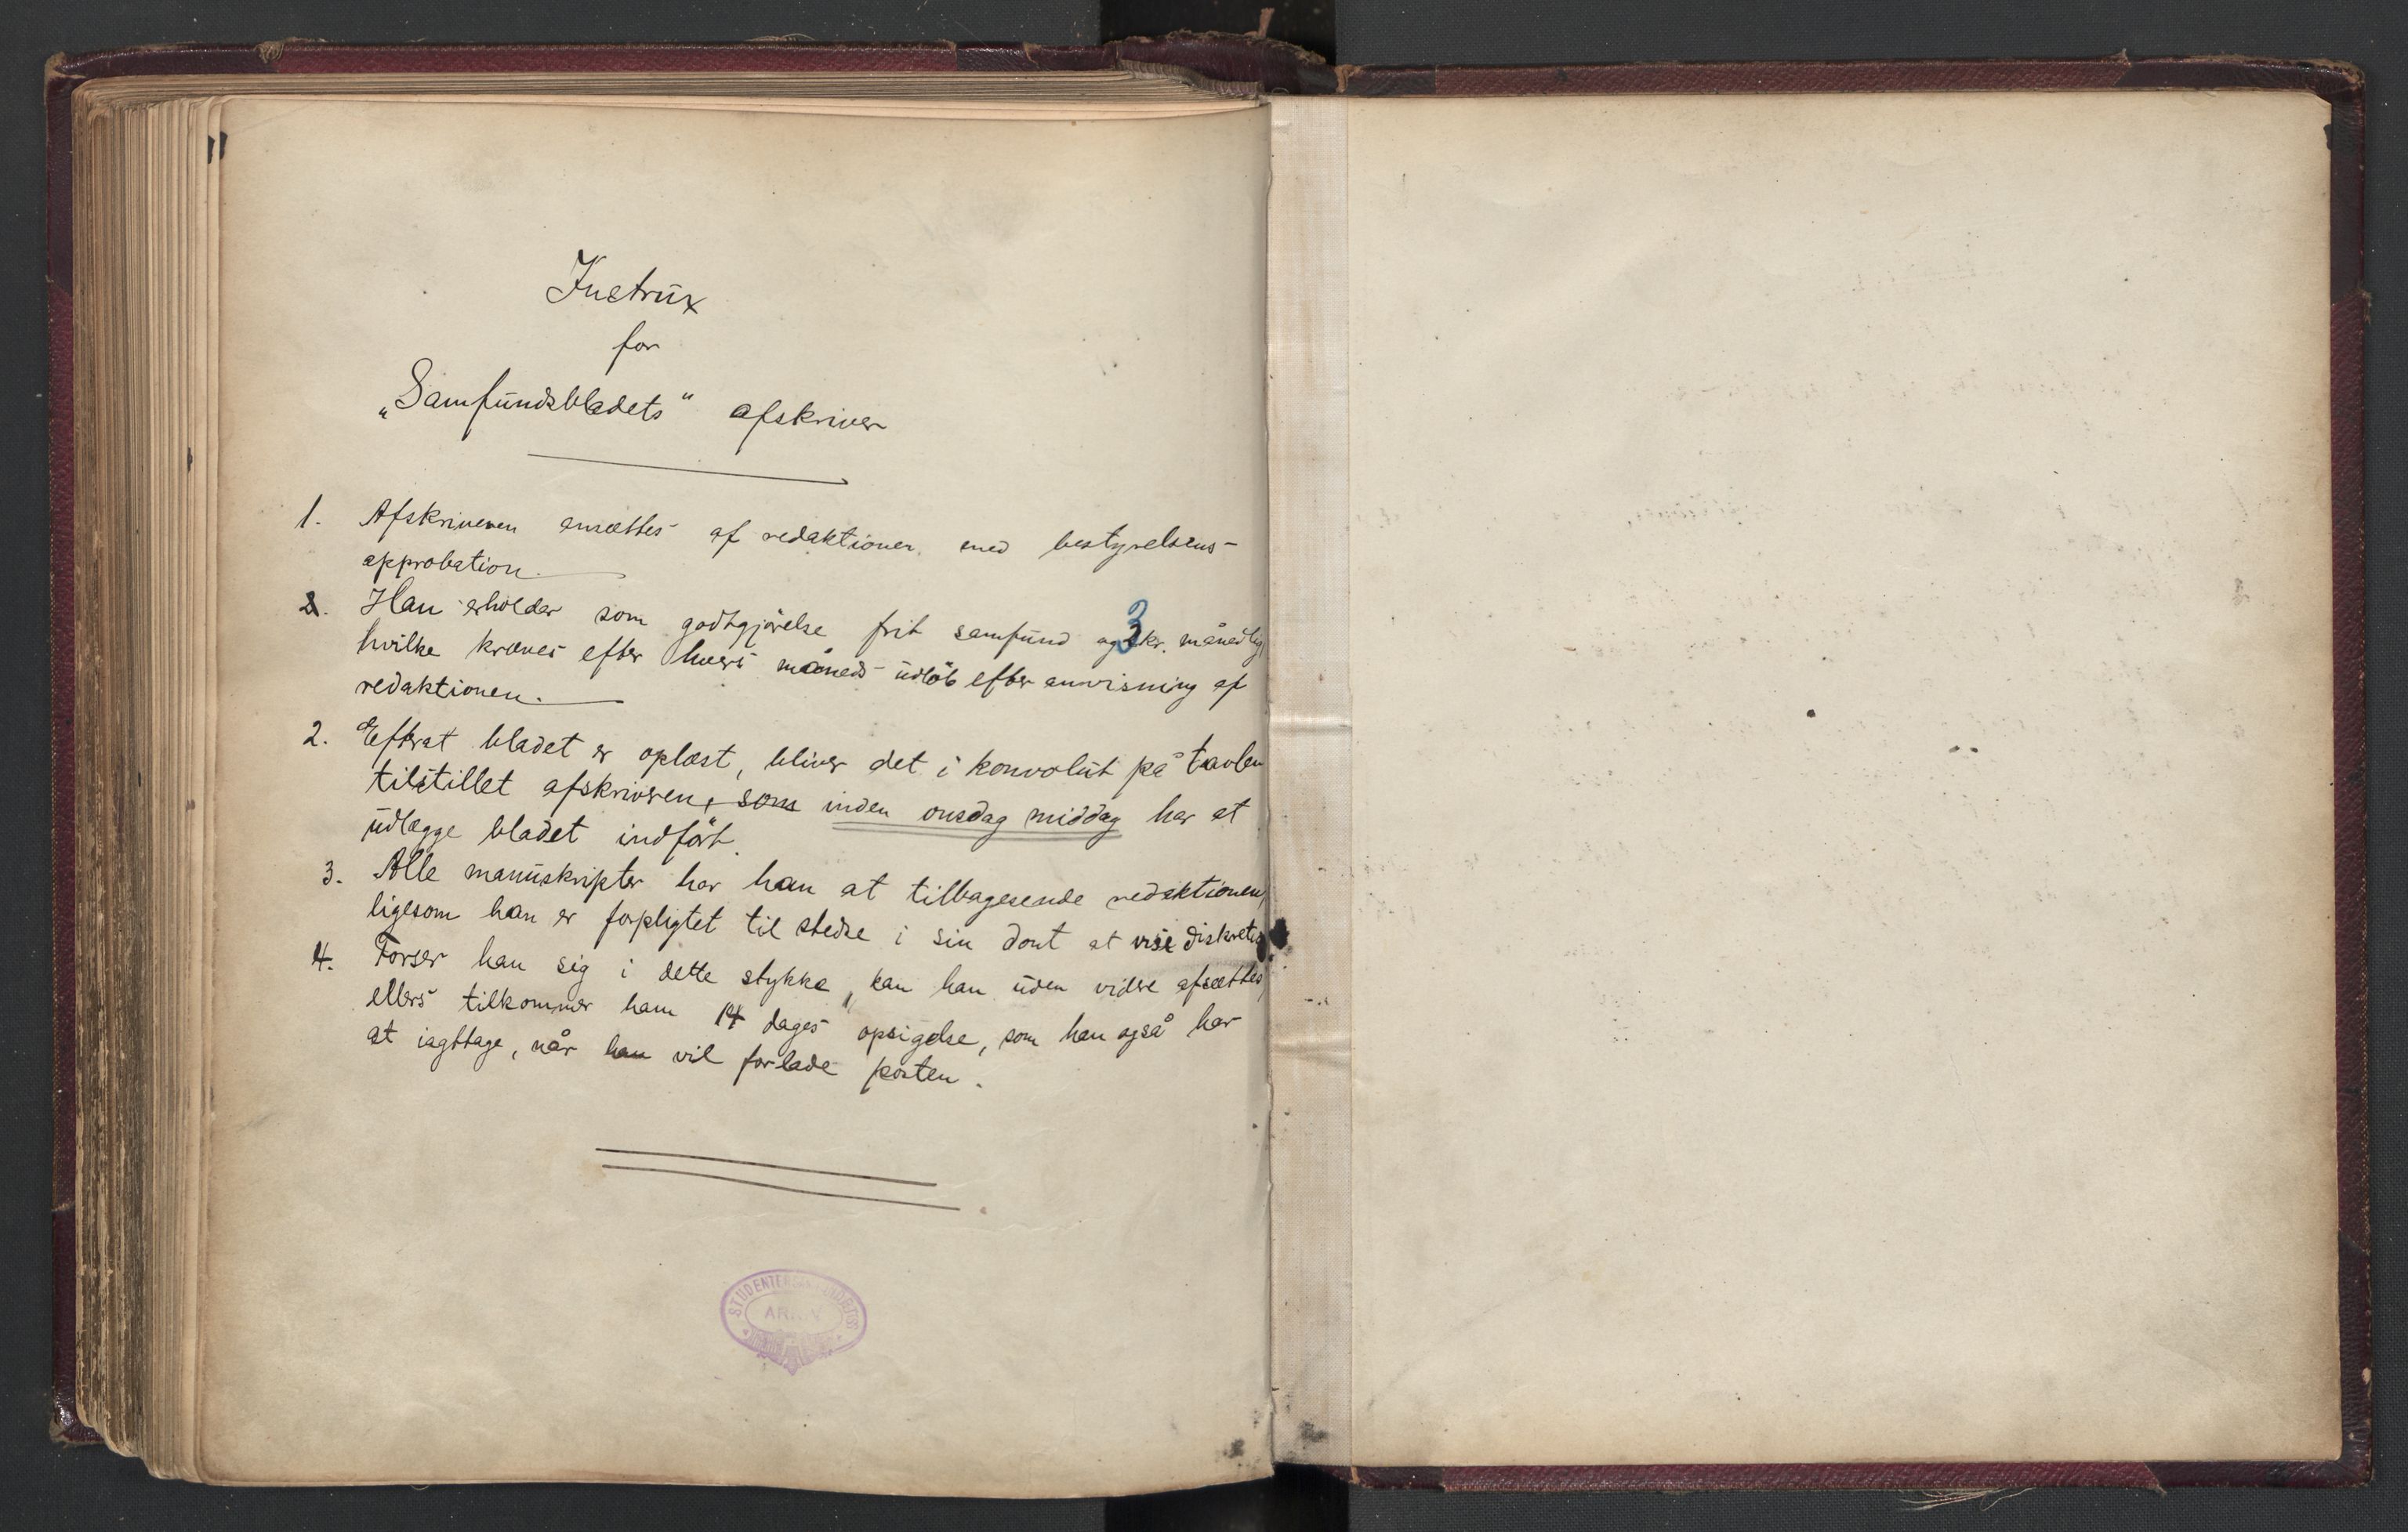 Instrux
for
„Samfundsbladets“ afskriver
1. Afskriveren ansættes af redaktionen med bestyrelsens
approbation.
2. Han erholder som godtgjörelse frit samfund og 3 kr. månedlig,
hvilke kræves efter hvers måneds udlöb efter anvisning af
redaktionen.
2. Efterat bladet er oplæst, bliver det i konvolut på tavlen
tilstillet afskriveren, som inden onsdag middag har at
udlægge bladet indfört.
3. Alle manuskripter har han at tilbagesende redaktionen,
ligesom han er forpligtet til stedse i sin dont at vise diskretion.
4. Forser han sig i dette stykke, kan han uden videre afsættes,
ellers tilkommer ham 14 dages opsigelse, som han også har
at iagttage, når han vil forlade posten.
ARKIV